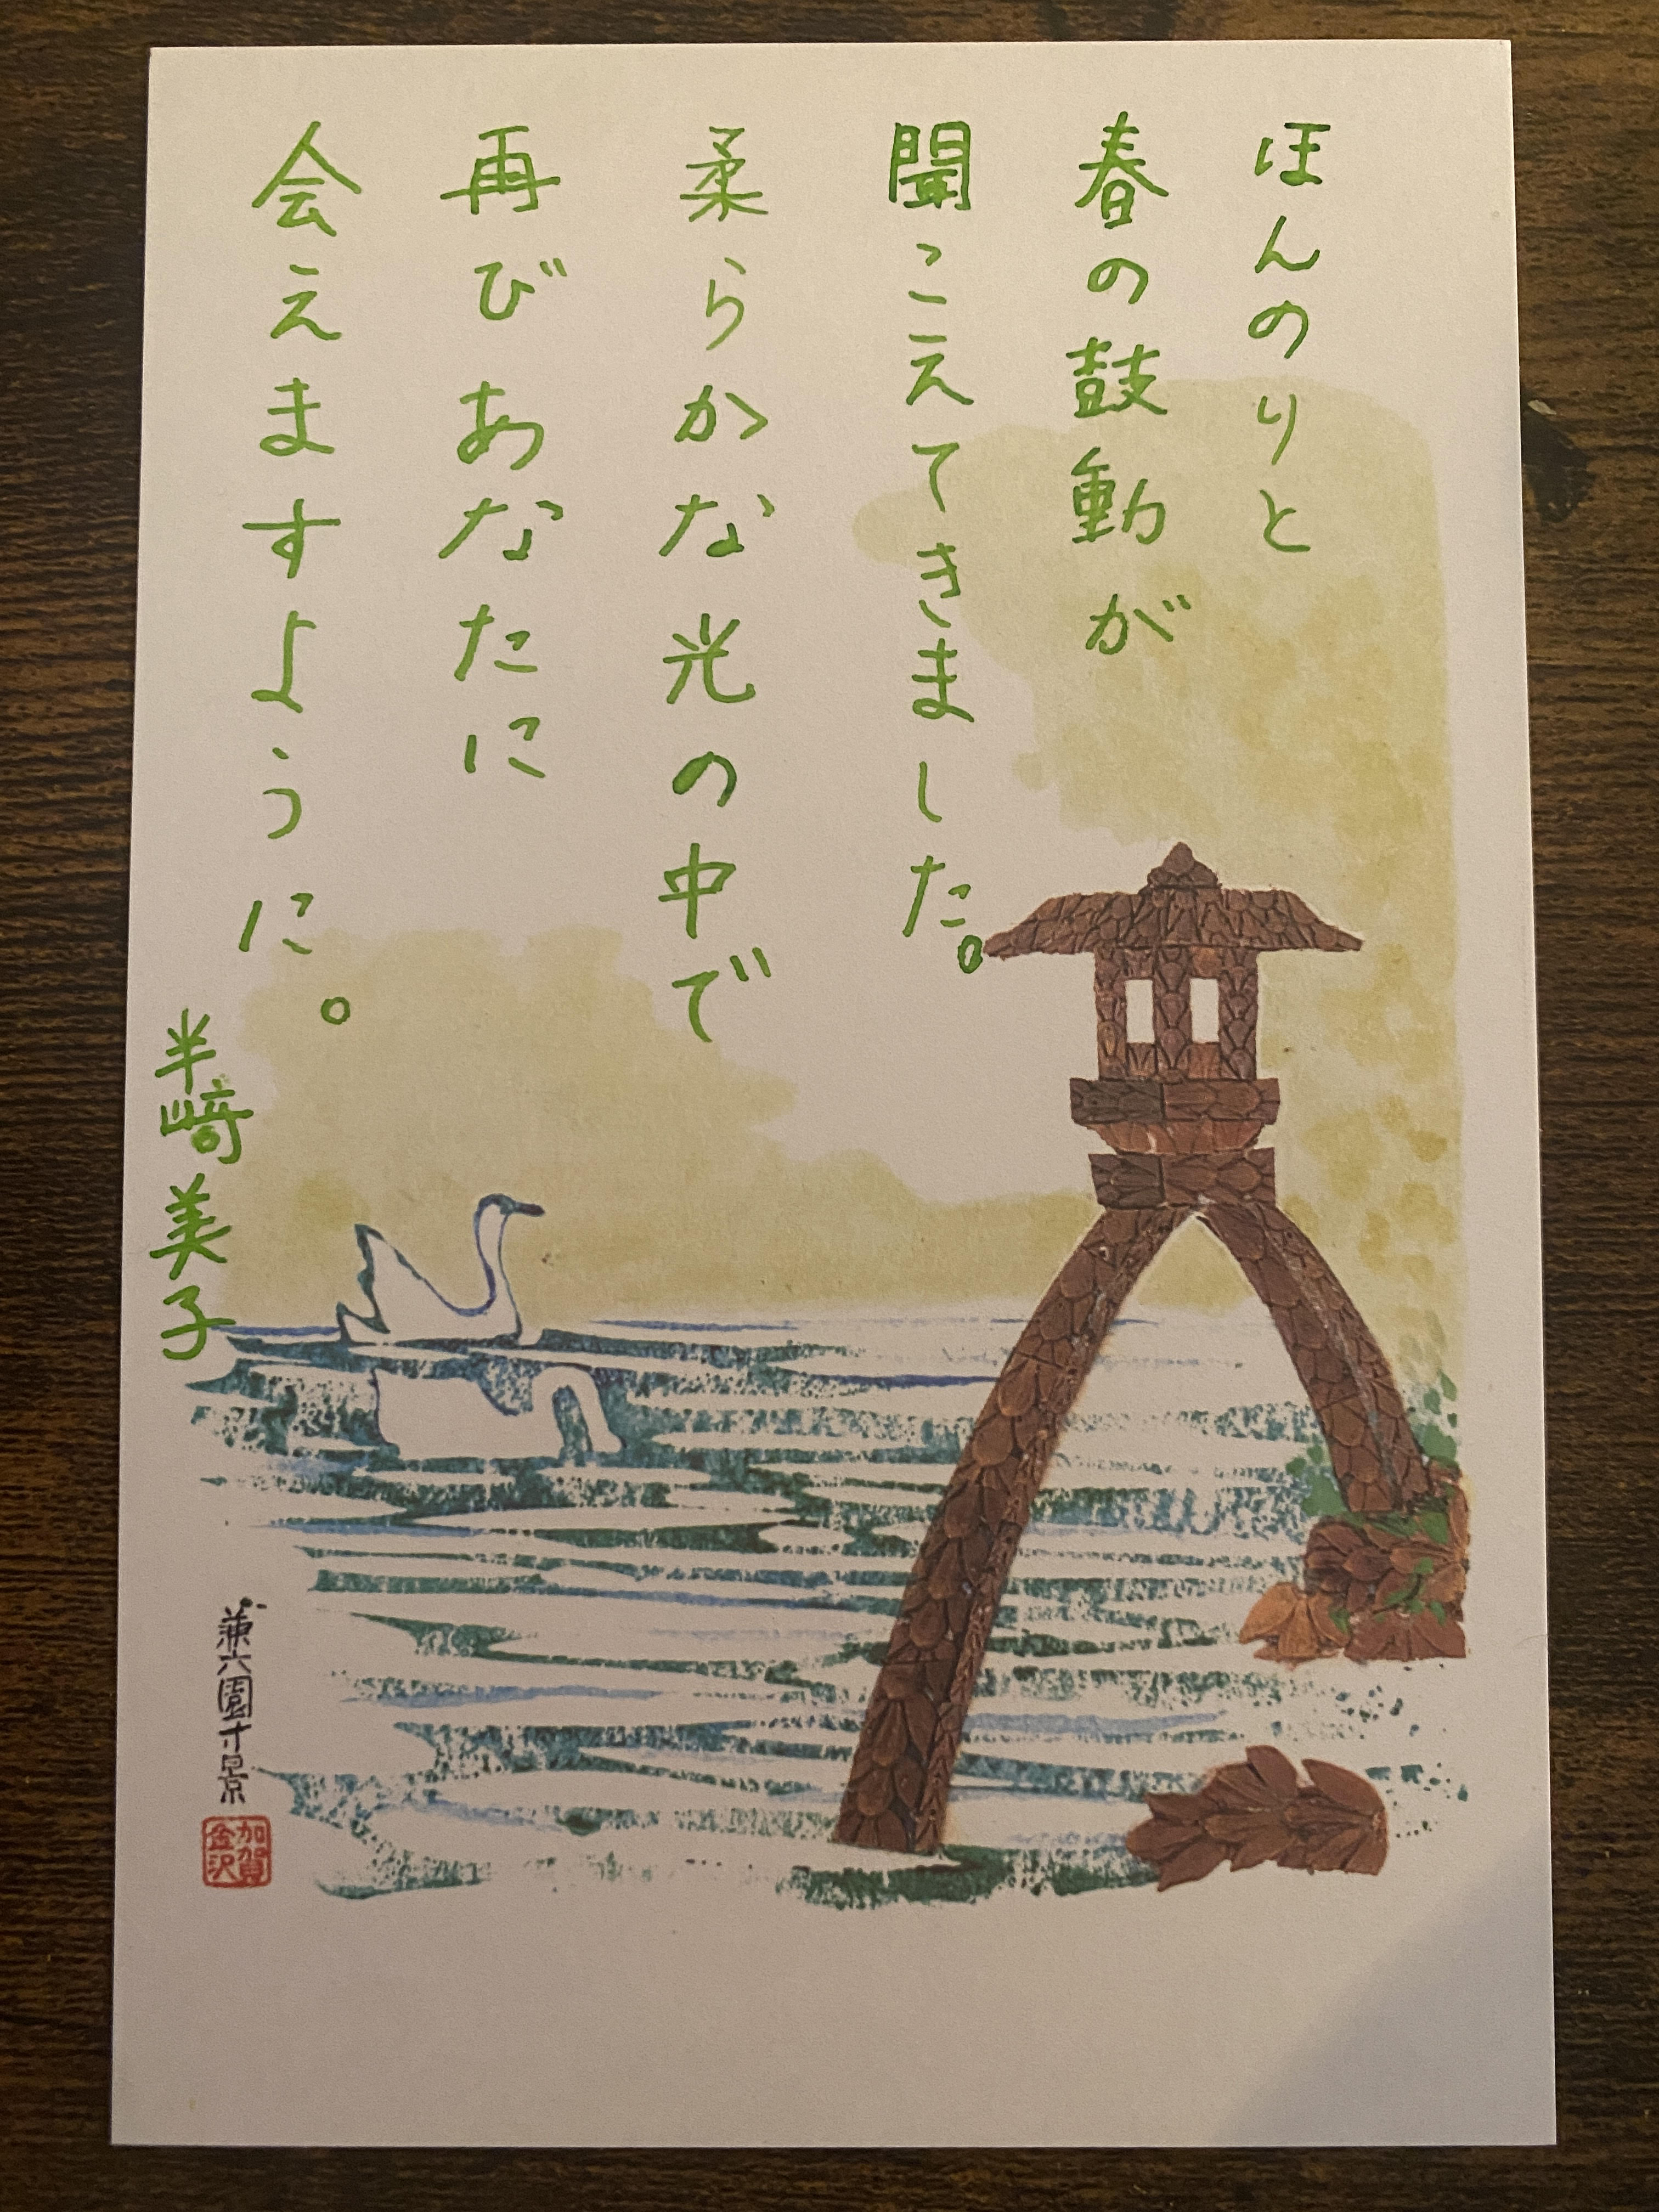 ほんのりと
春の鼓動が
聞こえてきました。
柔らかな光の中で
再びあなたに
会えますように。
半﨑美子
兼六園十景
加賀
金沢